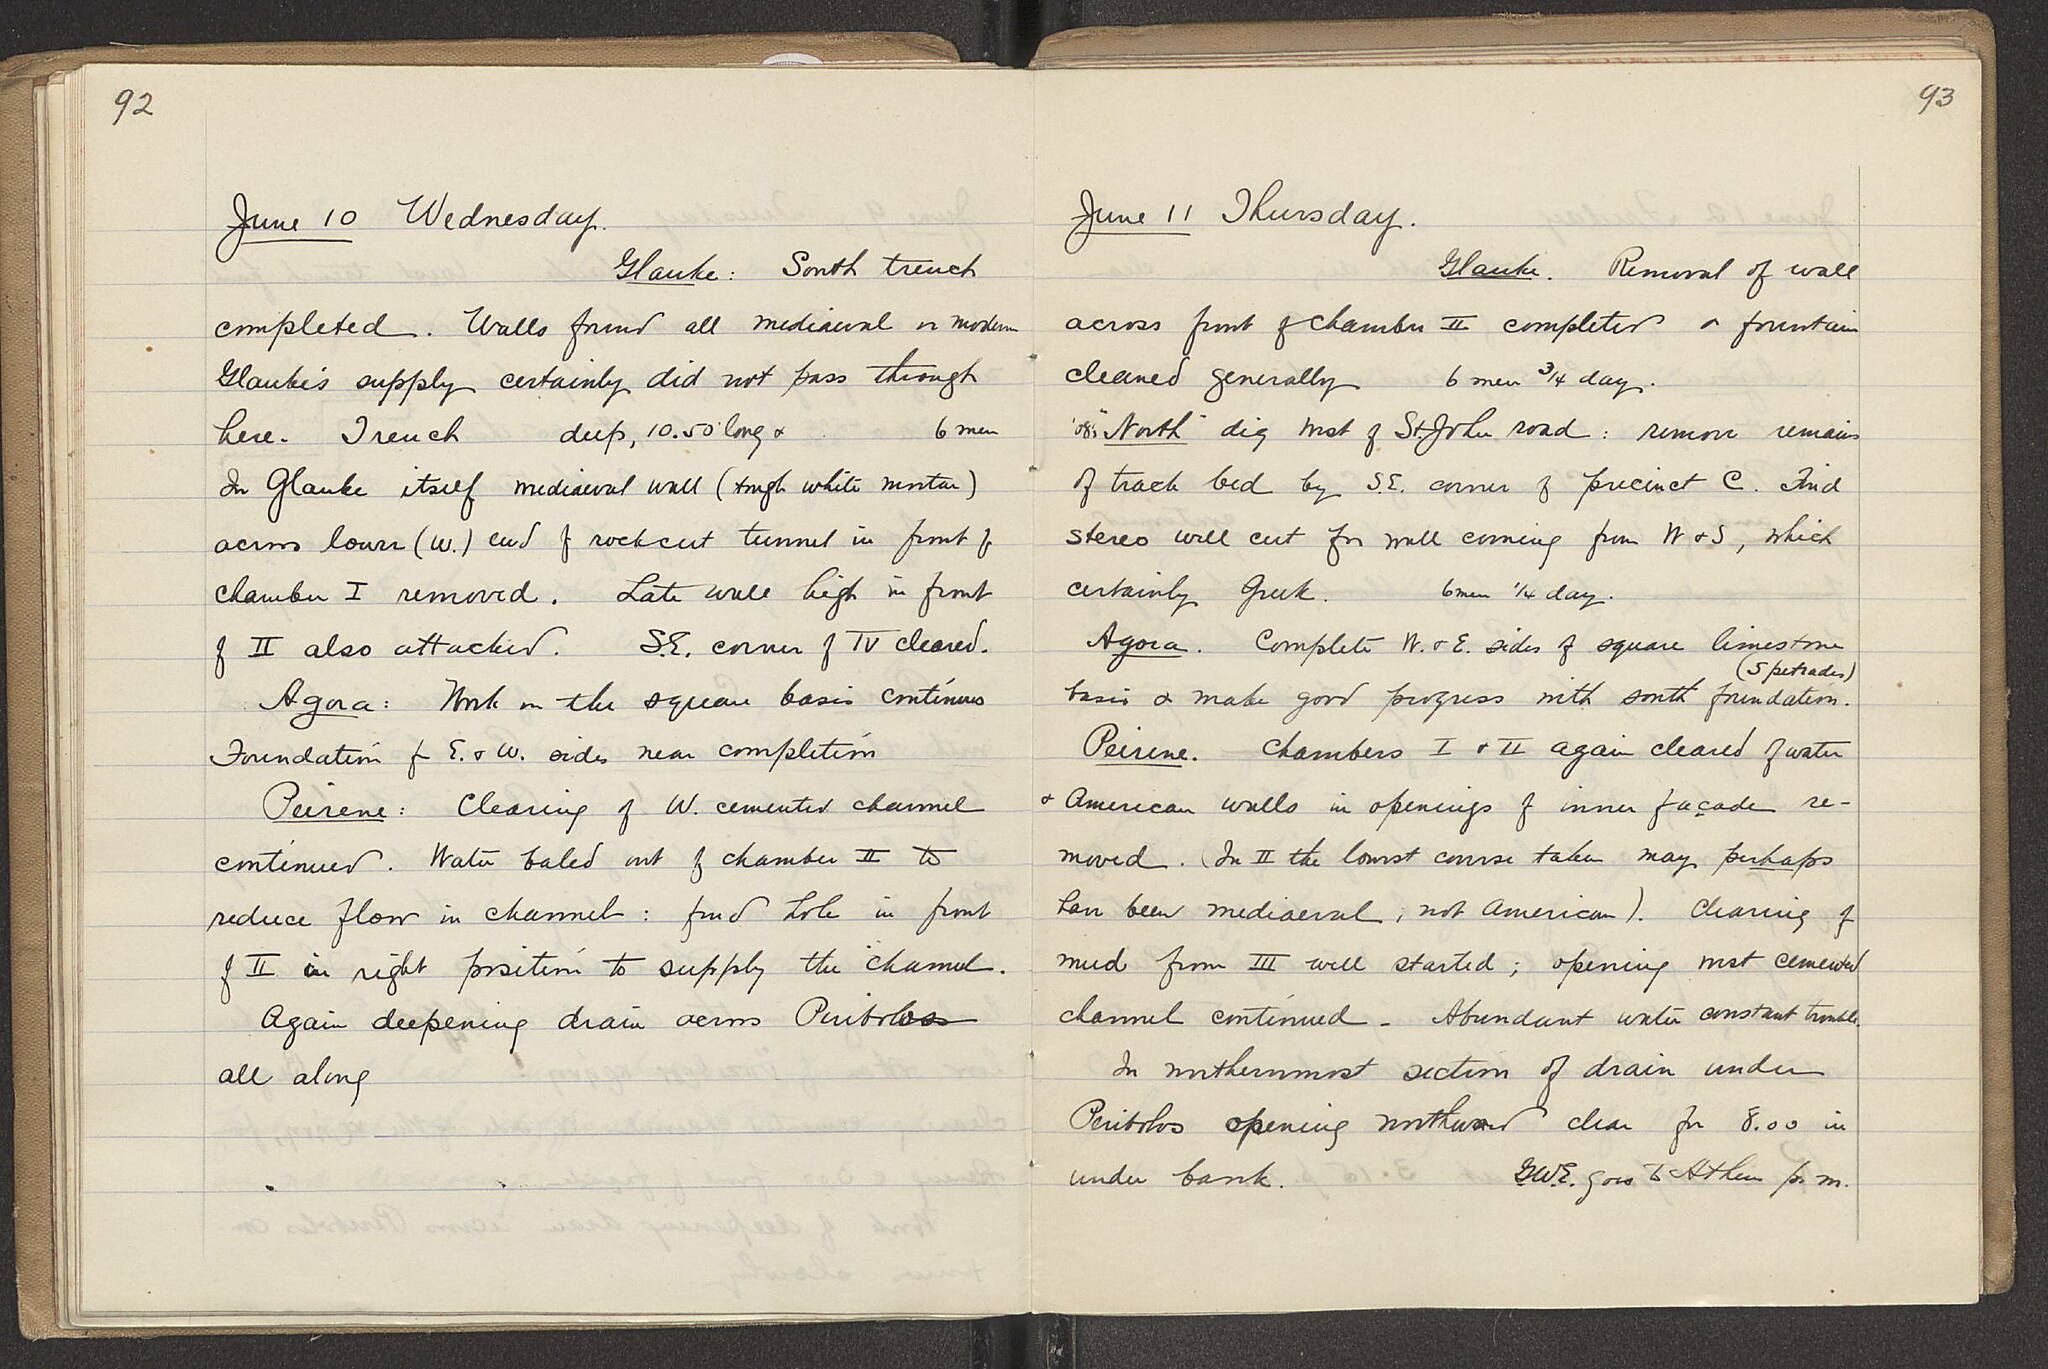 92
June 10 Wednesday.
Glauke: South trench
completed. Walls found all mediaeval or modern
Glauke's supply certainly did not pass through
here. Trench deep, 10.50 long & 6 men
In Glauke itself mediaeval wall (tough white mortar)
across lower (W.) end of rockcut tunnel in front of
chamber I removed. Late wall high in front
of II also attacked. S.E. corner of IV cleared.
Agora: Work on the square basis continues
Foundation of E. & W. sides near completion
Peirene: Clearing of W. cemented channel
continued. Water baled out of chamber II to
reduce flow in channel: find hole in front
of II in right position to supply the channel.
Again deepening drain across Peribolos
all along
93
June 11 Thursday.
Glauke. Removal of wall
across front of chamber II completed & fountain
cleaned generally 6 men 3/4 day.
"North" dig west of St. John road: remove remains
of track bed by S.E. corner of precinct C. Find
stereo well cut for wall coming from W & S, which
certainly Greek. 6 men 1/4 day.
Agora. Complete W. & E. sides of square limestone
(5 petrades)
basis & make good progress with south foundation.
Peirene. Chambers I & II again cleared of water
& American walls in openings of inner façade re-
moved. (In II the lowest course taken may perhaps
have been mediaeval, not American). Clearing of
mud from III well started; opening west cemented
channel continued - Abundant water constant trouble.
In northernmost section of drain under
Peribolos opening northward clear for 8.00 in
under bank. G.W.E. goes to Athens p.m.